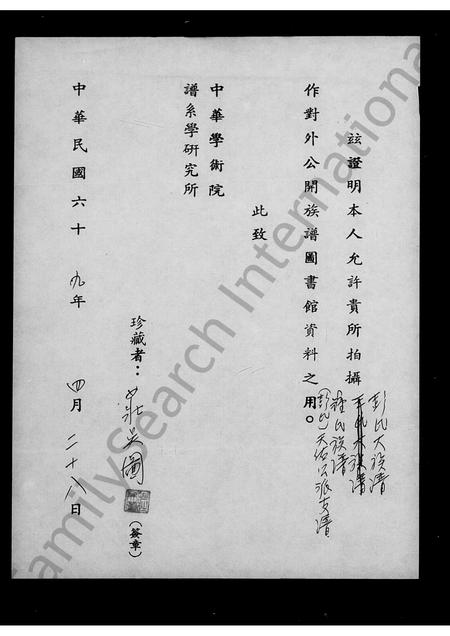 茲證明本人允許貴所拍攝
彭氏大族譜
氏族譜
(彭氏)天佑公派支譜
作對外公開族譜圖書館資料之用。
此致
中華學術院
譜系學研究所
珍藏者：莊吳圖
(簽章)
中華民國六十九年四月二十八日
FamilySearch International